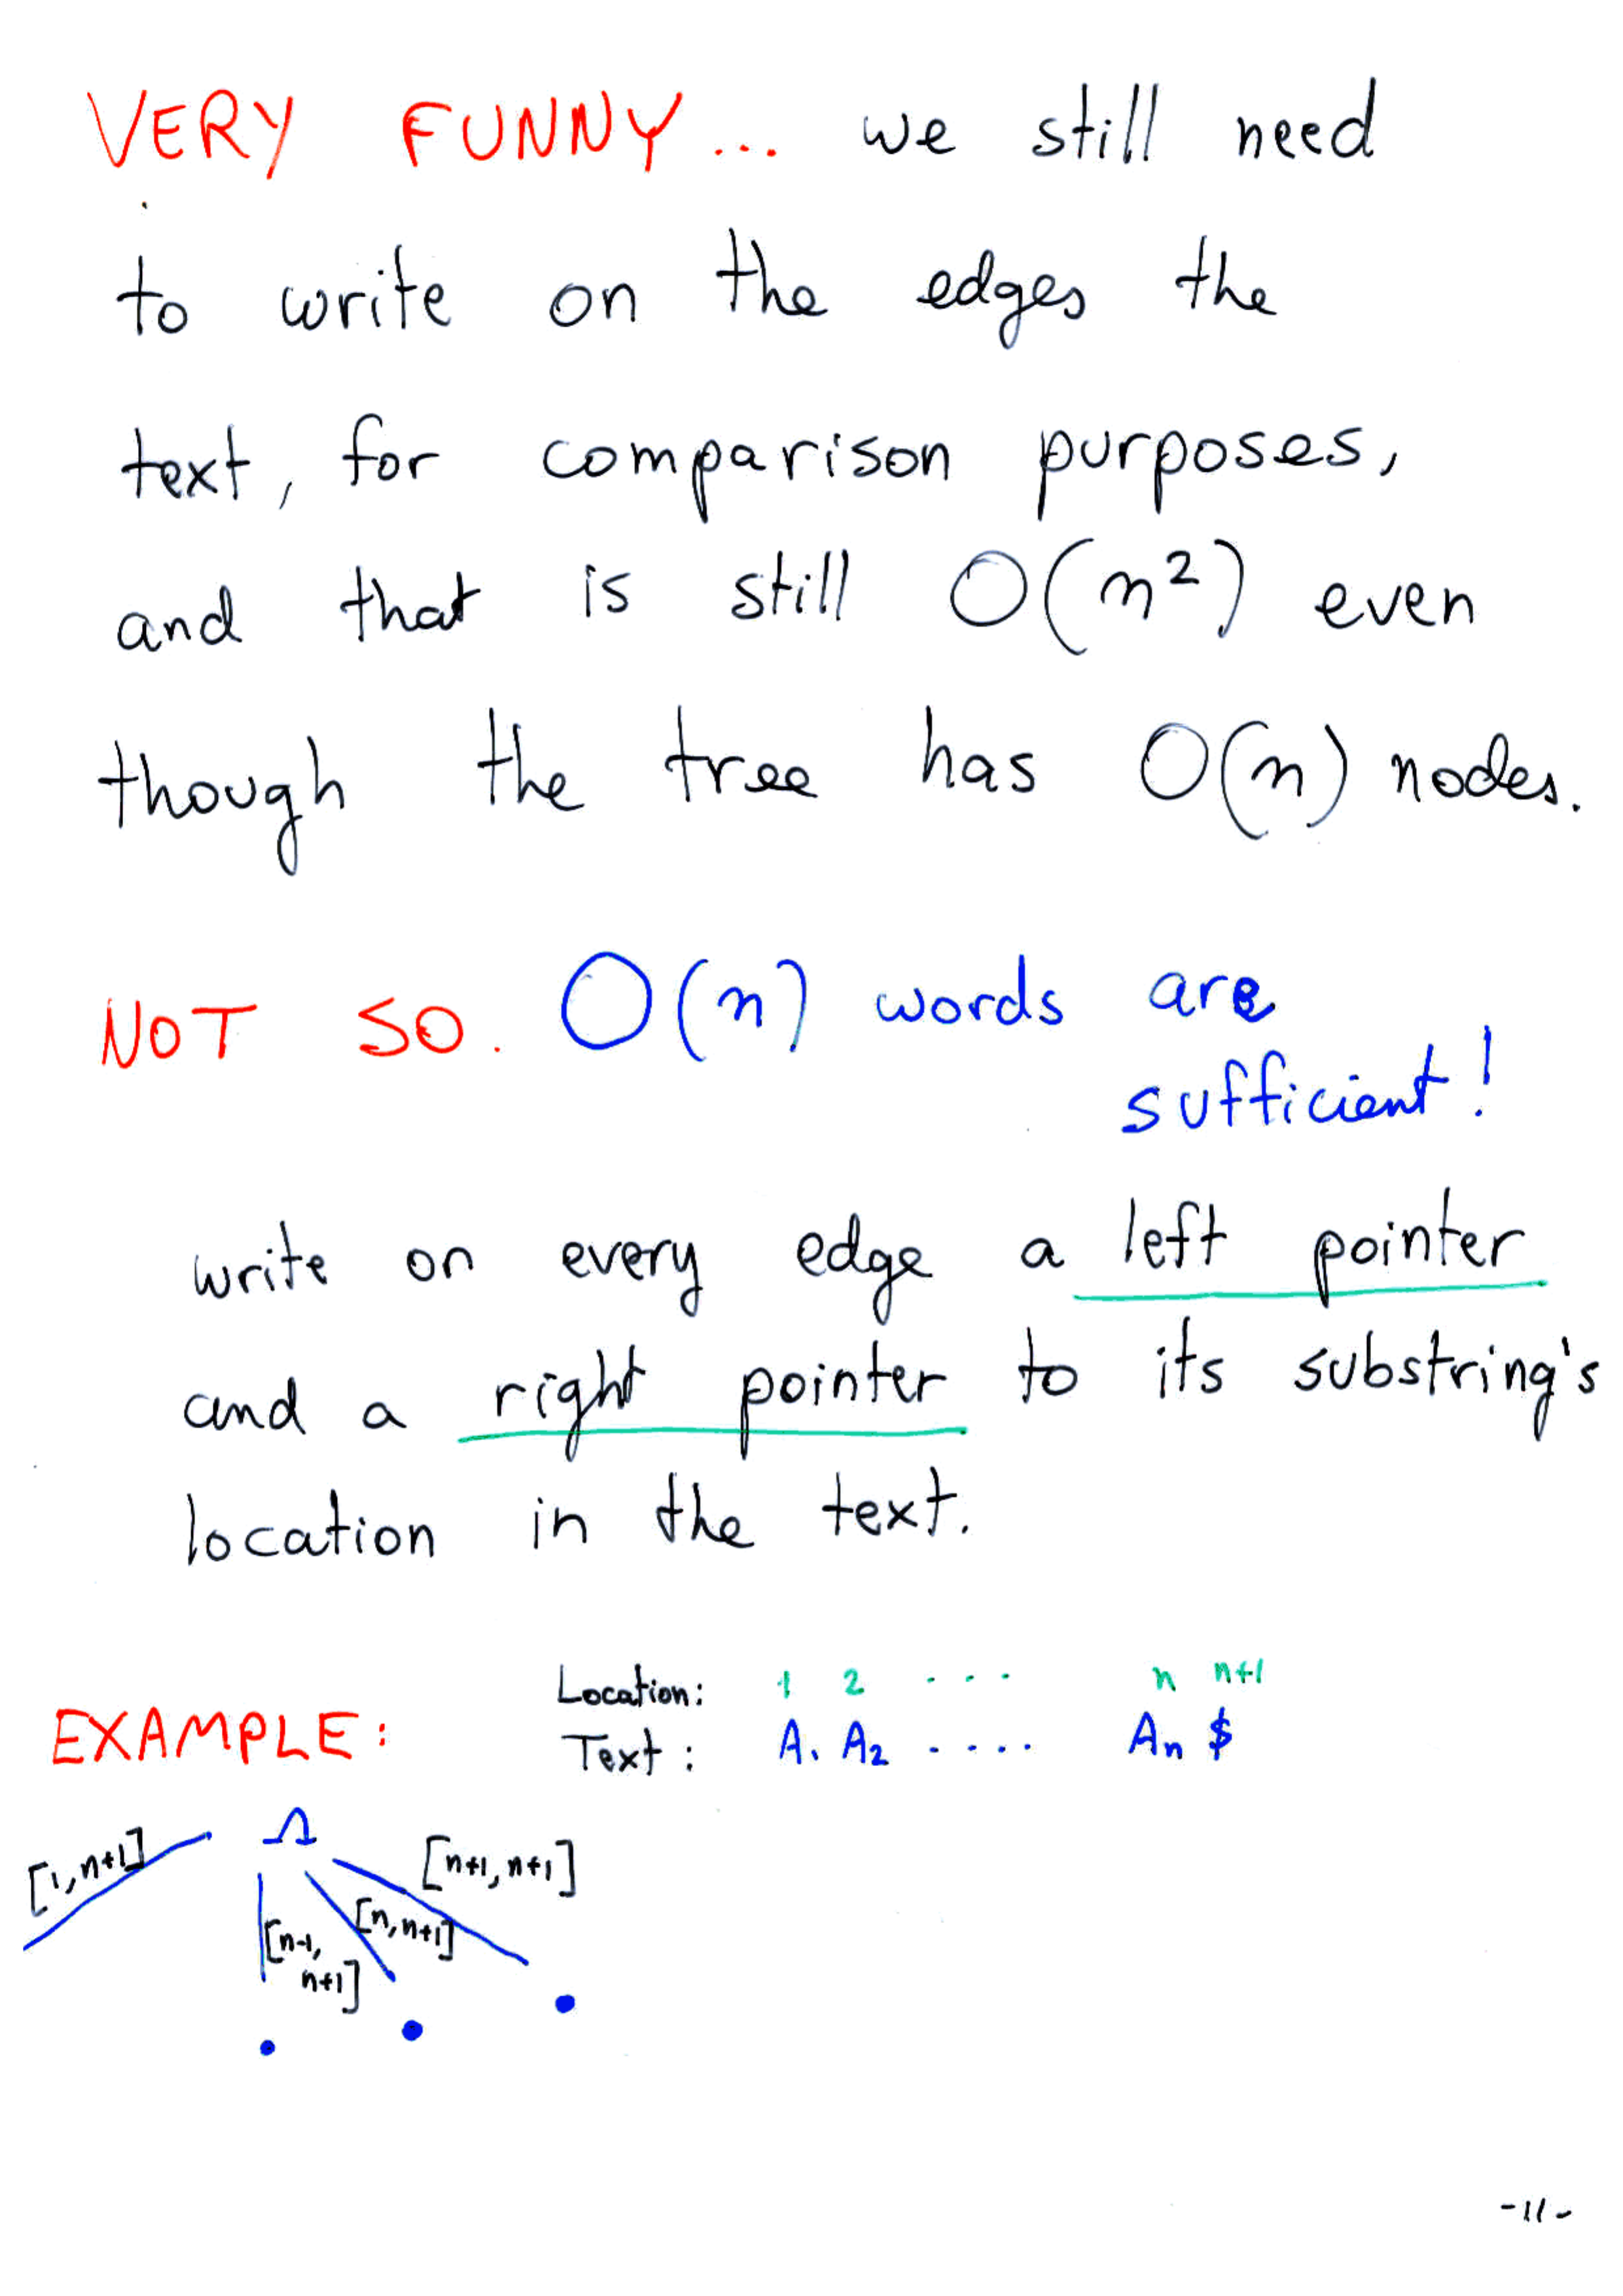 VERY FUNNY... we still need
to write on the edges the
text, for comparison purposes,
and that is still O(n²) even
though the tree has O(n) nodes.
NOT SO. O(n) words are
sufficient!
write on every edge a left pointer
and a right pointer to its substring's
location in the text.
Location: 1 2 .... n n+1
EXAMPLE:
Text: A₁ A₂ .... An $
Λ
[1,n+1]
[n+1,n+1]
[n,n+1]
[n-1,
n+1]
-11-